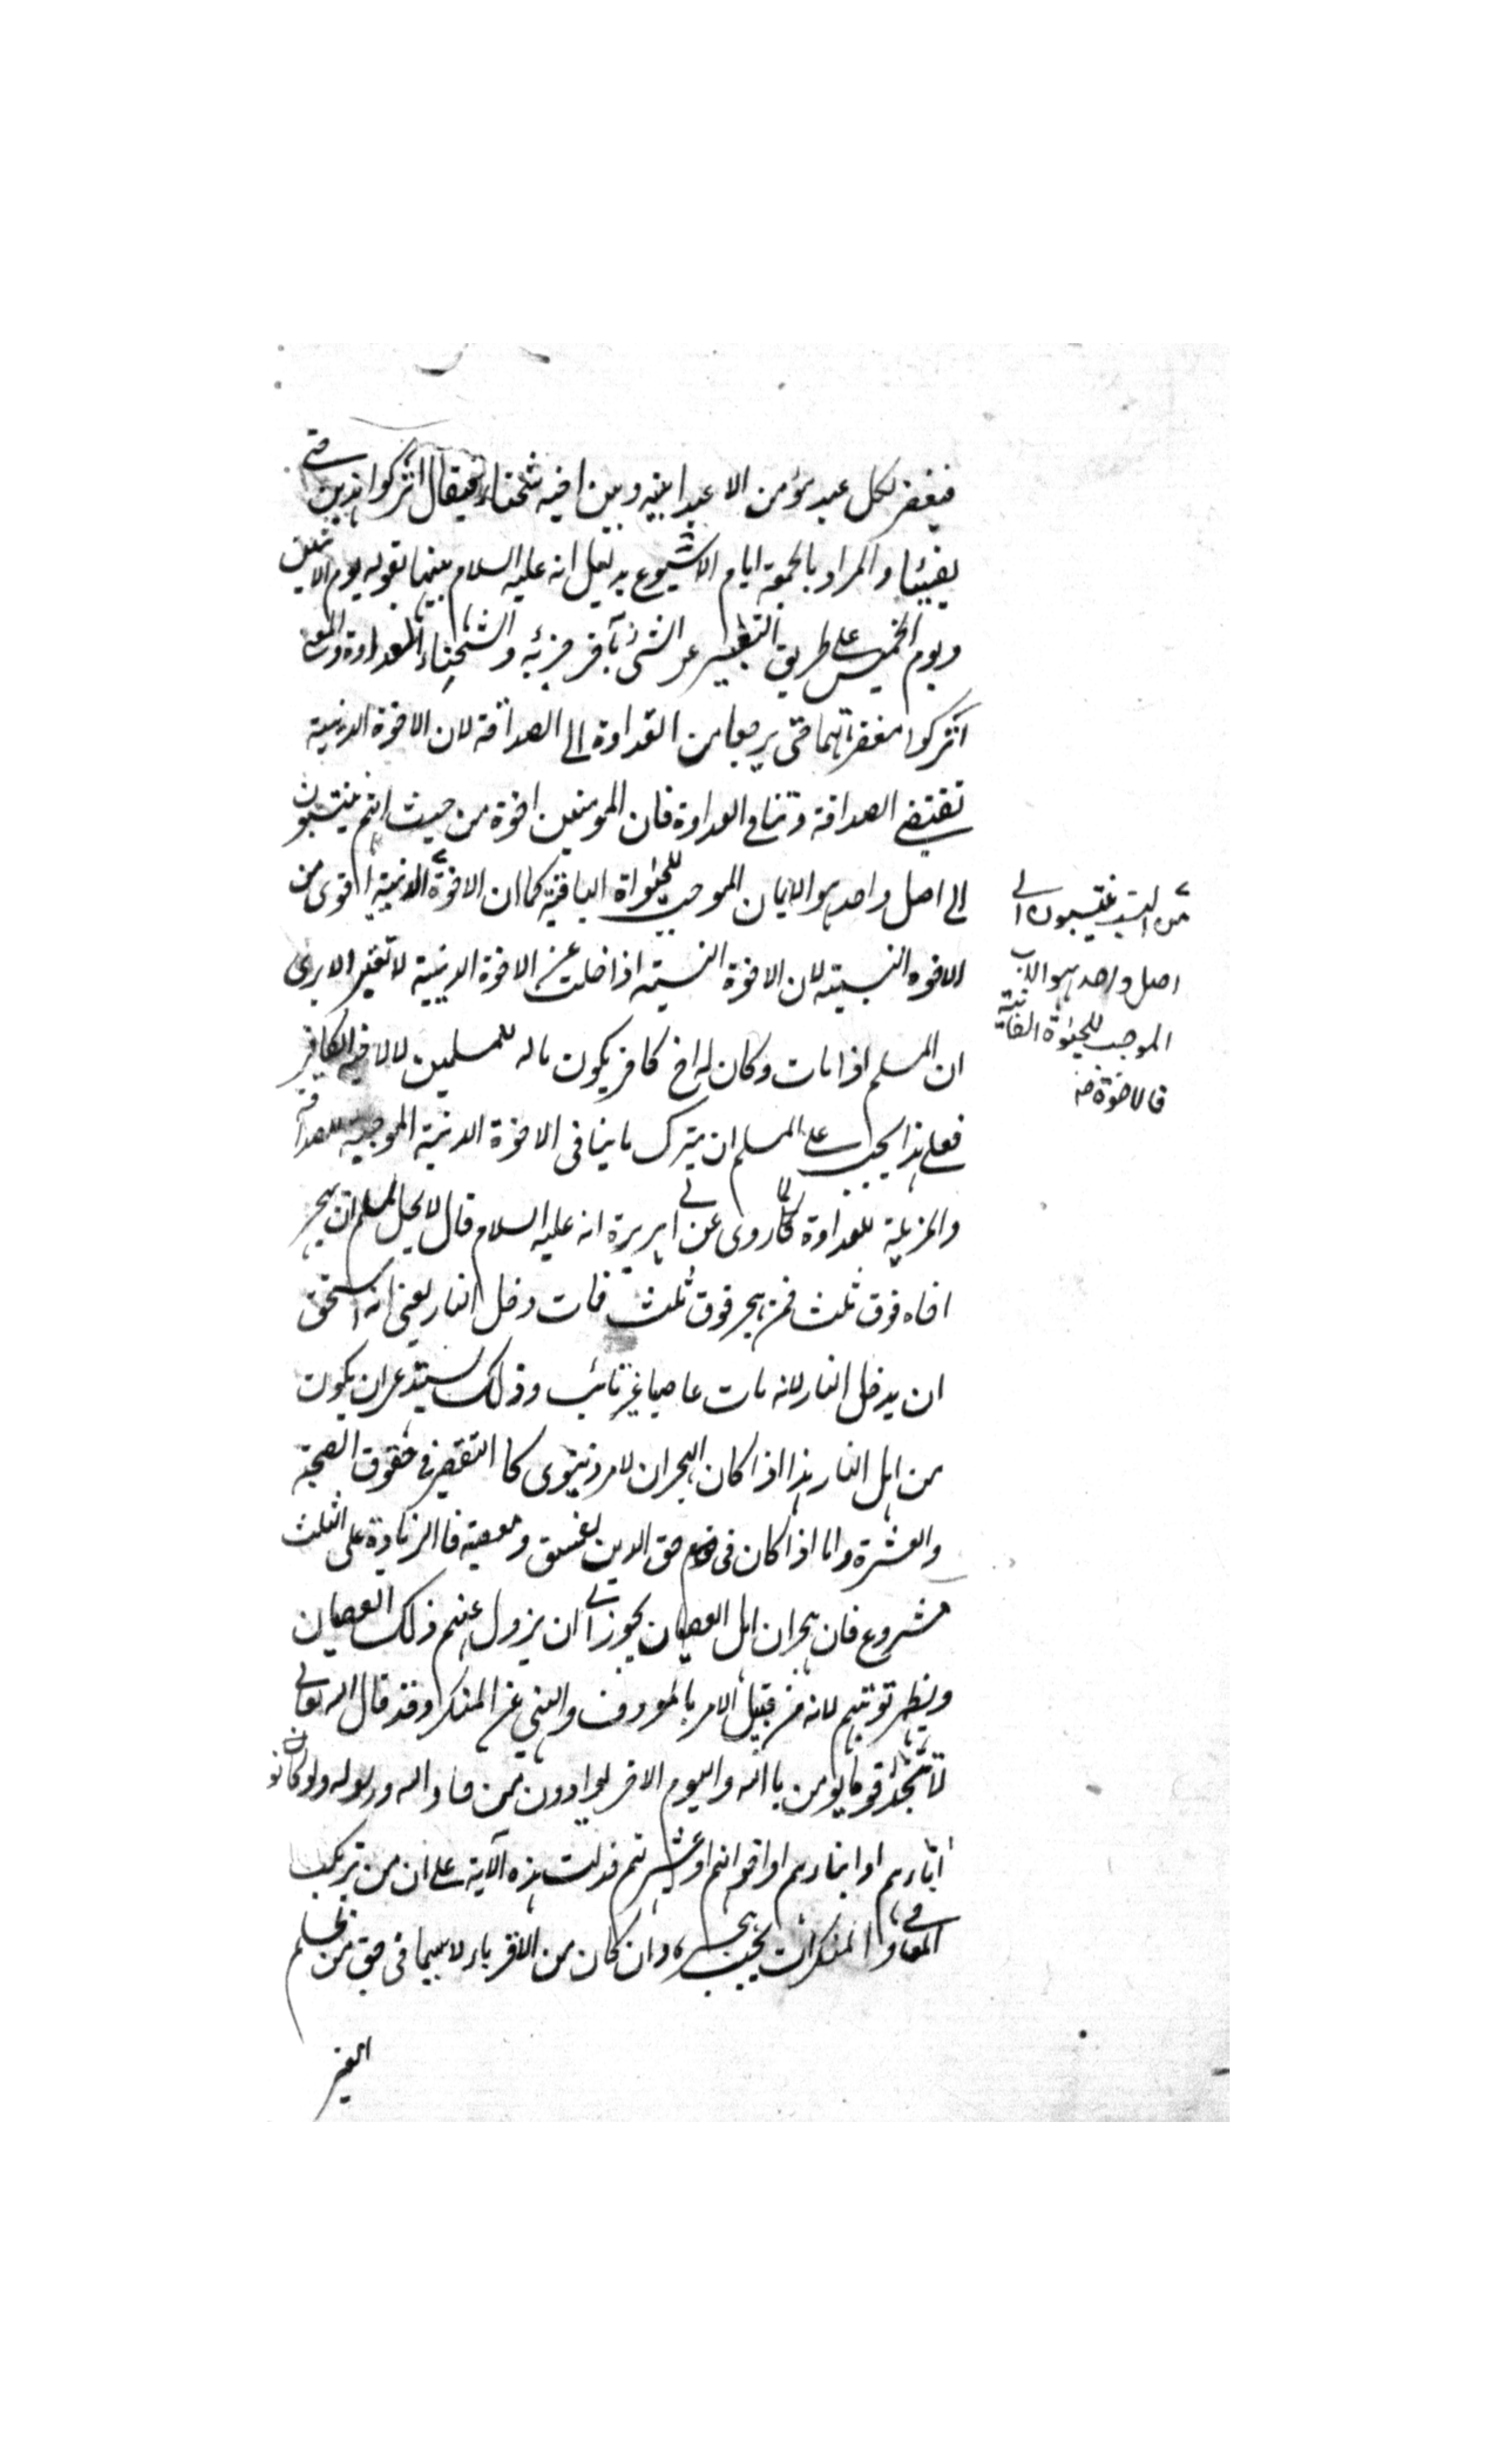 فيغفر لكل عبد مؤمن الا عبدا بينه وبين اخيه شحناء فيقال اتركوا هذين حتى
يفيئا والمراد بالجمعة ايام الاسبوع بدليل انه عليه السلام بينها بقوله يوم الاثنين
ويوم الخميس على طريق التعبير عن الشئ بآخر جزئه والشحناء العداوة والمعنى
اتركوا مغفرتهما حتى يرجعا من العداوة الى الصداقة لان الاخوة الدينية
تقتضى الصداقة وتنافى العداوة فان المومنين اخوة من حيث انهم ينتسبون
الى اصل واحد هو الايمان الموجب للحيواة الباقية كما ان الاخوة الدينية اقوى من
الاخوة النسبية لان الاخوة النسبية اذا خلت عن الاخوة الدينية لا تعتبر الا يرى
ان المسلم اذا مات وكان له اخ كافر يكون ماله للمسلمين لا لاخيه الكافر
فعلى هذا يجب على المسلم ان يترك ما ينافى الاخوة الدينية الموجبة للصداقة
والمزيلة للعداوة كما روى عن ابى هريرة انه عليه السلام قال لا يحل لمسلم ان يهجر
اخاه فوق ثلث فمن هجر فوق ثلث فمات دخل النار يعنى انه استحق
ان يدخل النار لانه مات عاصيا غير تائب وذلك يستدعى ان يكون
من اهل النار هذا اذا كان الهجران لامر دنيوى كا التقصير فى حقوق الصحبة
والعشرة واما اذا كان فى حق الدين لفسق ومعصية فا الزيادة على الثلث
مشروع فان هجران اهل العصيان يجوز الى ان يزول عنهم ذلك العصيان
ويظهر توبتهم لانه من قبيل الامر بالمعروف والنهى عن المنكر وقد قال الله تعالى
لا تجد قوما يومن باالله واليوم الاخر يوادون من حاد الله ورسوله ولو كانوا
آبائهم او ابنائهم او اخوانهم او عشيرتهم فدلت هذه الآية على ان من يرتكب
المعاصى والمنكرات يجب هجره وان كان من الاقرباء لا سيما فى حق من ظلم
الغير
من النسب ينتسبون الى
اصل واحد هو الاب
الموجب للحيوة الفانية
فالاخوة